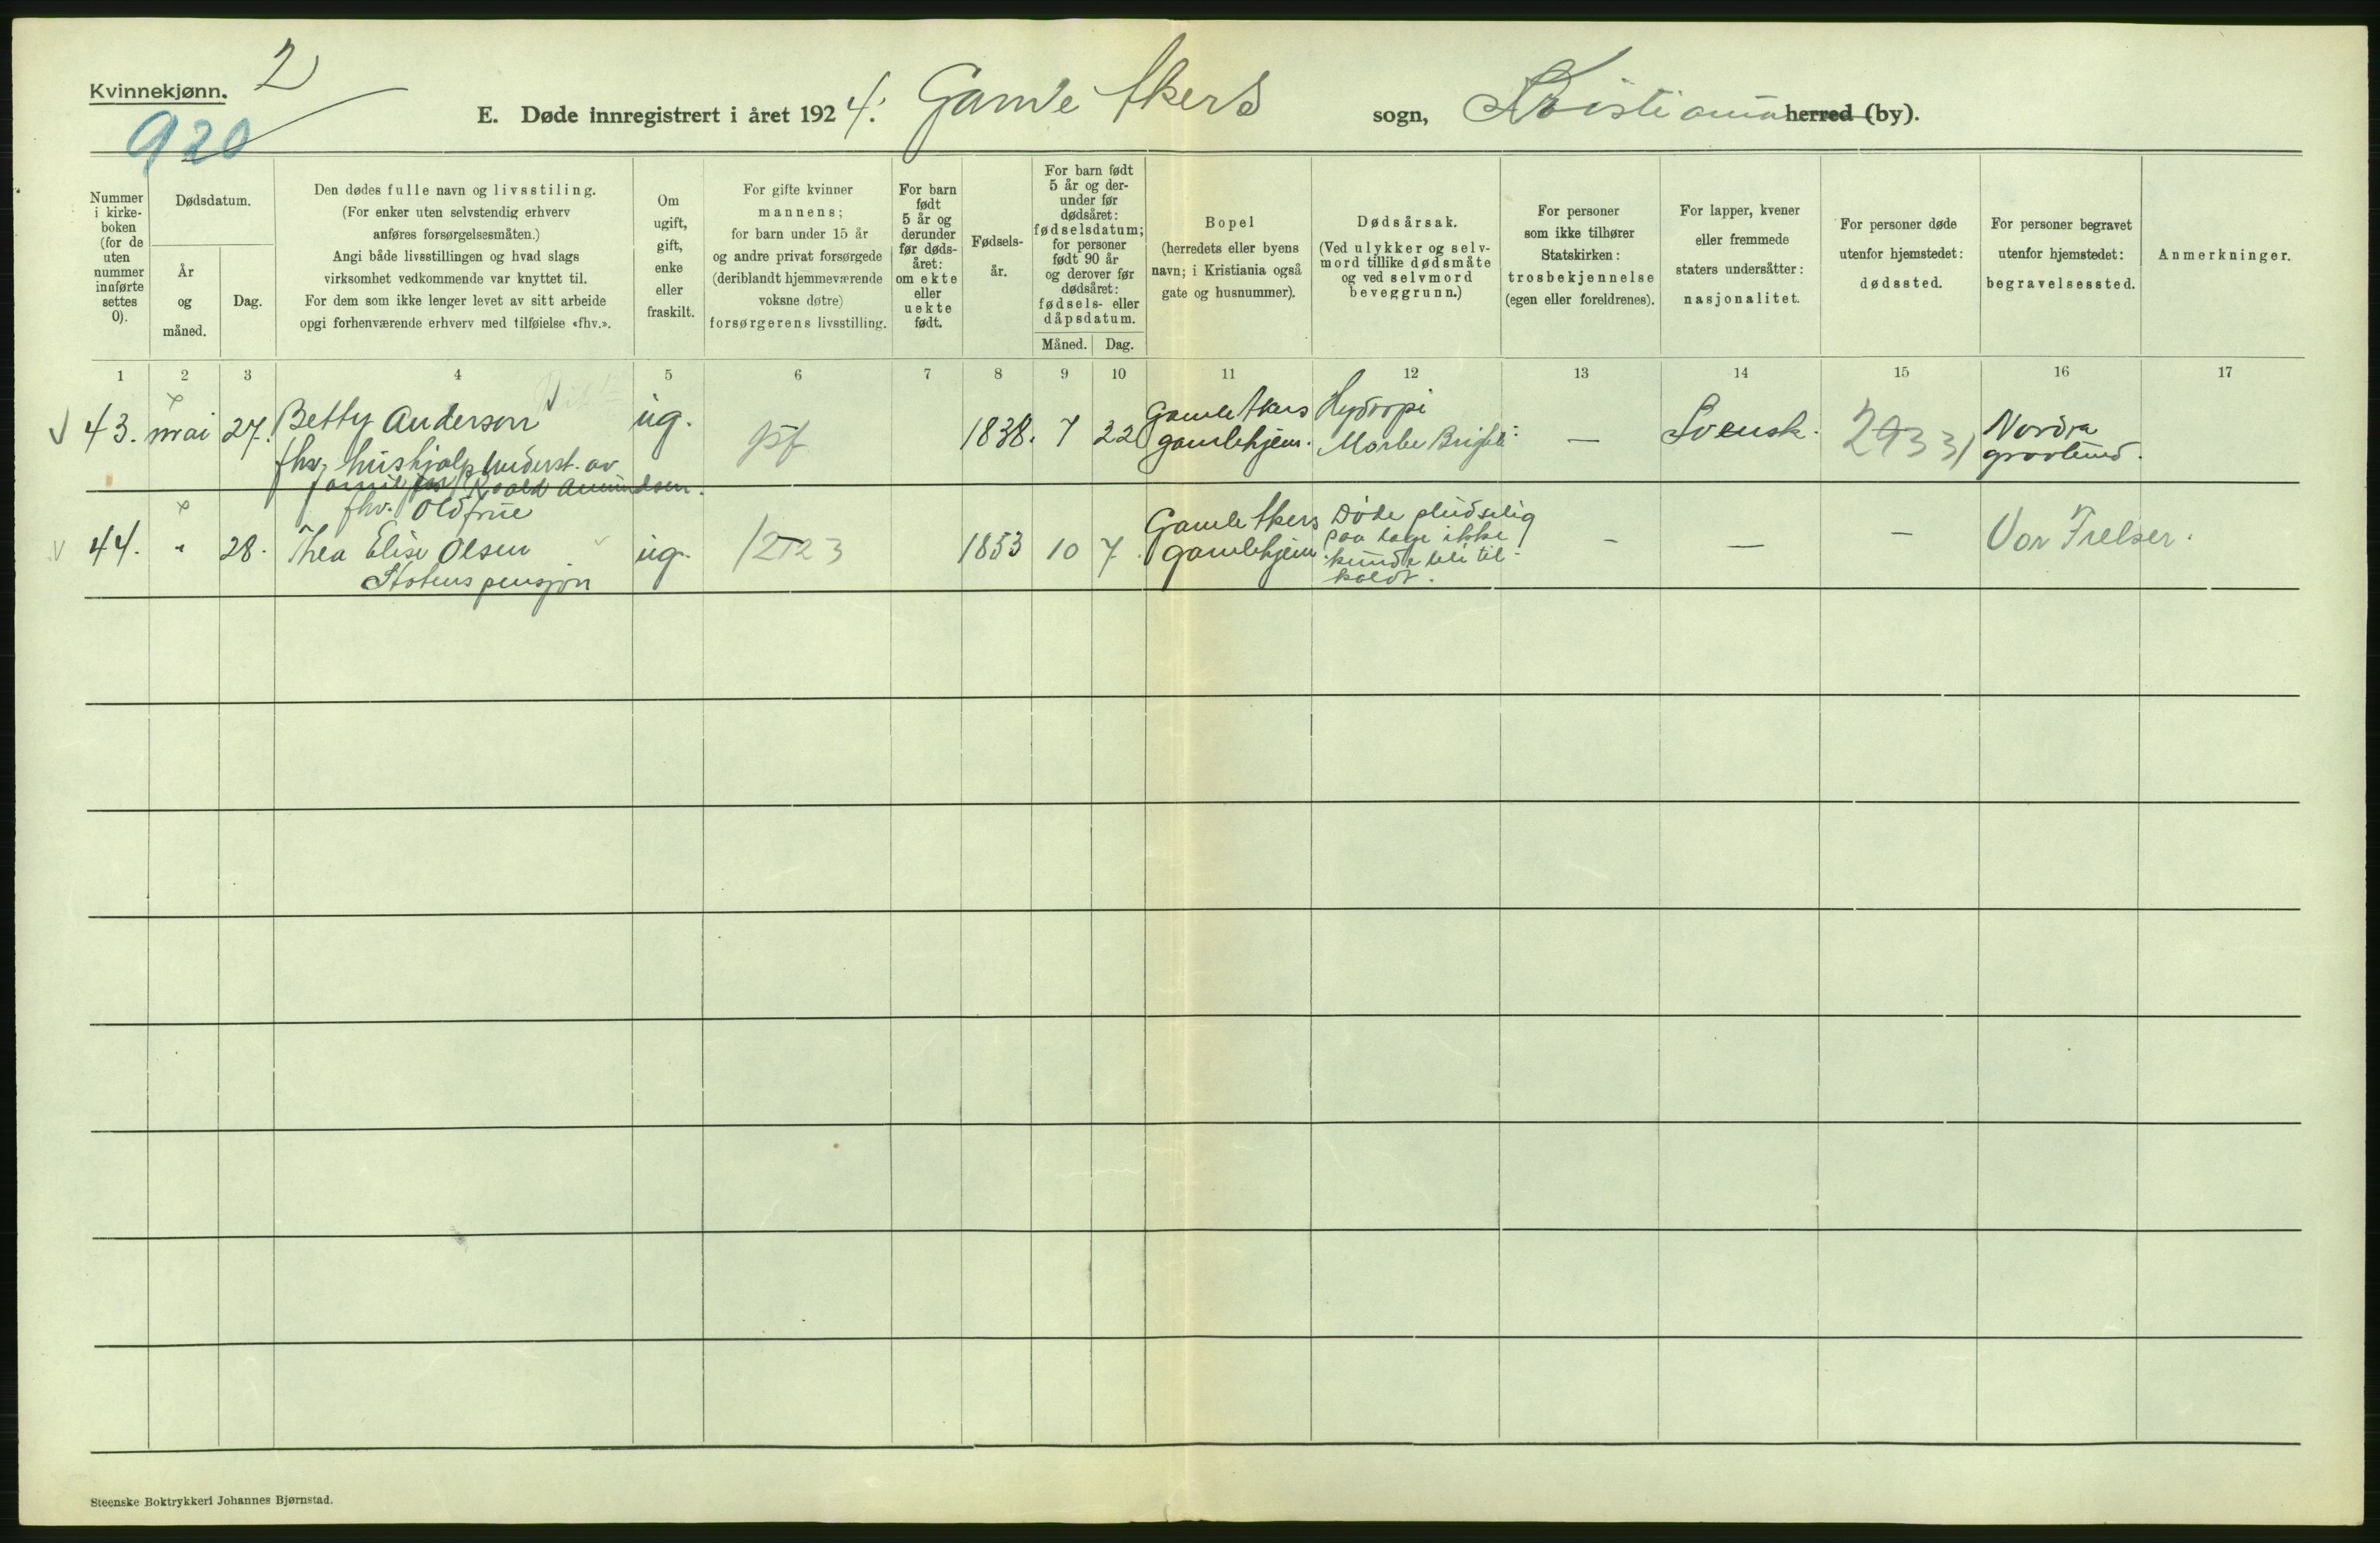 Kvinnekjønn. 2
920
E. Døde innregistrert i året 1924. Gamle Akers sogn, Kristiania herred (by).
Nummer i kirkeboken (for de uten nummer innførte settes 0).
Dødsdatum.
År og måned.
Dag.
Den dødes fulle navn og livsstiling.
(For enker uten selvstendig erhverv
anføres forsørgelsesmåten.)
Angi både livsstillingen og hvad slags
virksomhet vedkommende var knyttet til.
For dem som ikke lenger levet av sitt arbeide
opgi forhenværende erhverv med tilføielse «fhv.».
Om ugift, gift, enke eller fraskilt.
For gifte kvinner
mannens;
for barn under 15 år
og andre privat forsørgede
(deriblandt hjemmeværende
voksne døtre)
forsørgerens livsstilling.
For barn født 5 år og derunder før dødsåret: om ekte eller uekte født.
Fødselsår.
For barn født 5 år og derunder før dødsåret: fødselsdatum; for personer født 90 år og derover før dødsåret: fødsels- eller dåpsdatum.
Måned. Dag.
Bopel
(herredets eller byens
navn; i Kristiania også
gate og husnummer).
Dødsårsak.
(Ved ulykker og selvmord tillike dødsmåte
og ved selvmord
beveggrunn.)
For personer
som ikke tilhører
Statskirken:
trosbekjennelse
(egen eller foreldrenes).
For lapper, kvener
eller fremmede
staters undersåtter:
nasjonalitet.
For personer døde
utenfor hjemstedet:
dødssted.
For personer begravet
utenfor hjemstedet:
begravelsessted.
Anmerkninger.
1 2 3 4 5 6 7 8 9 10 11 12 13 14 15 16 17
43. mai 27. Betty Anderson ug. 1838. 7 22 Gamle Akers Hydropi — Svensk. 2933) Nordre
fhv. hushjalp underst. av gamlehjem. Morbe Brightii gravlund.
famil Roald Amundsen.
fhv. Oldfrue
44. " 28. Thea Elise Olsen ug. 12723 1853 10 7. Gamle Akers Døde pludselig – — – Vor Frelser.
Statens pensjon gamlehjem. saa læge ikke
kunde bli til-
kaldt.
Steenske Boktrykkeri Johannes Bjørnstad.